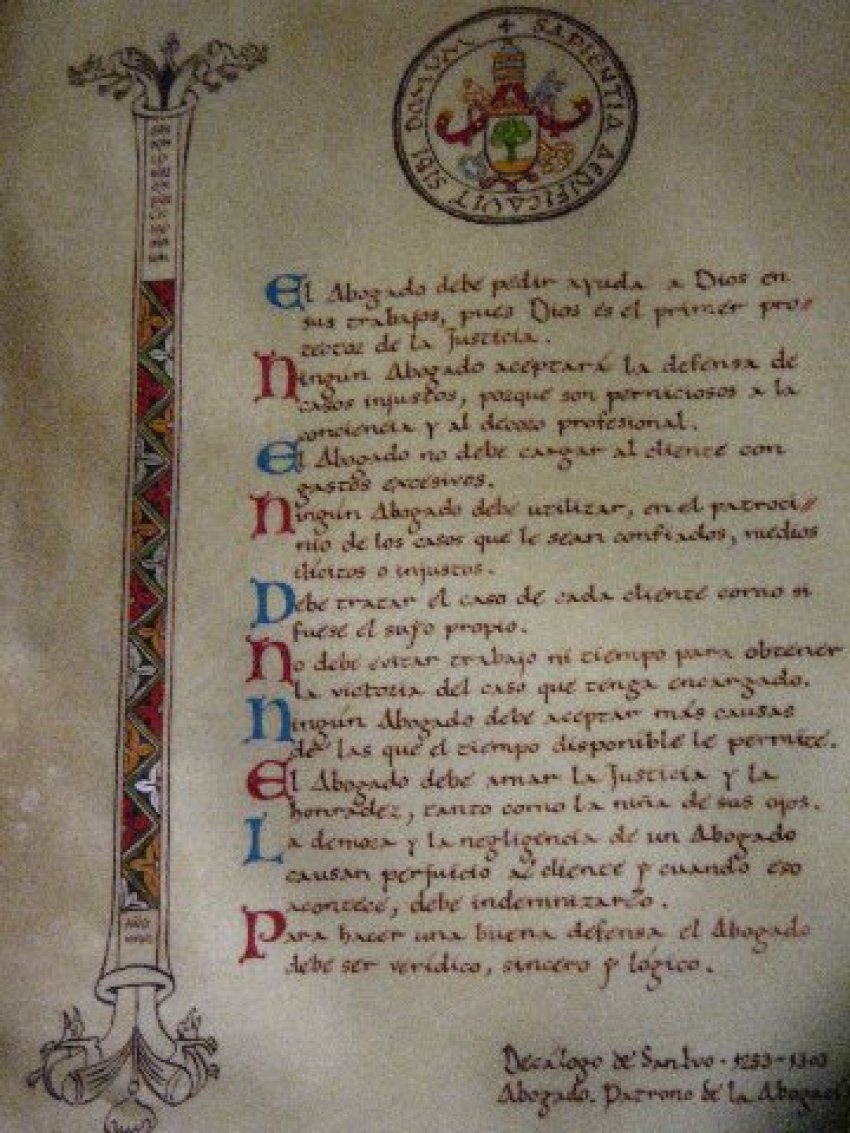 SAPIENTIA AEDIFICAVIT SIBI DOMUM
El Abogado debe pedir ayuda a Dios en
sus trabajos, pues Dios es el primer pro-
tector de la Justicia.
Ningún Abogado aceptará la defensa de
casos injustos, porque son perniciosos a la
conciencia y al decoro profesional.
El Abogado no debe cargar al cliente con
gastos excesivos.
Ningún Abogado debe utilizar, en el patroci-
nio de los casos que le sean confiados, medios
ilícitos o injustos.
Debe tratar el caso de cada cliente como si
fuese el suyo propio.
No debe evitar trabajo ni tiempo para obtener
la victoria del caso que tenga encargado.
Ningún Abogado debe aceptar más causas
de las que el tiempo disponible le permite.
El Abogado debe amar la Justicia y la
honradez, tanto como la niña de sus ojos.
La demora y la negligencia de un Abogado
causan perjuicio al cliente y cuando eso
acontece, debe indemnizarlo.
Para hacer una buena defensa el Abogado
debe ser verídico, sincero y lógico.
AÑO
Decálogo de San Ivo - 1253-1303
Abogado. Patrono de la Abogací